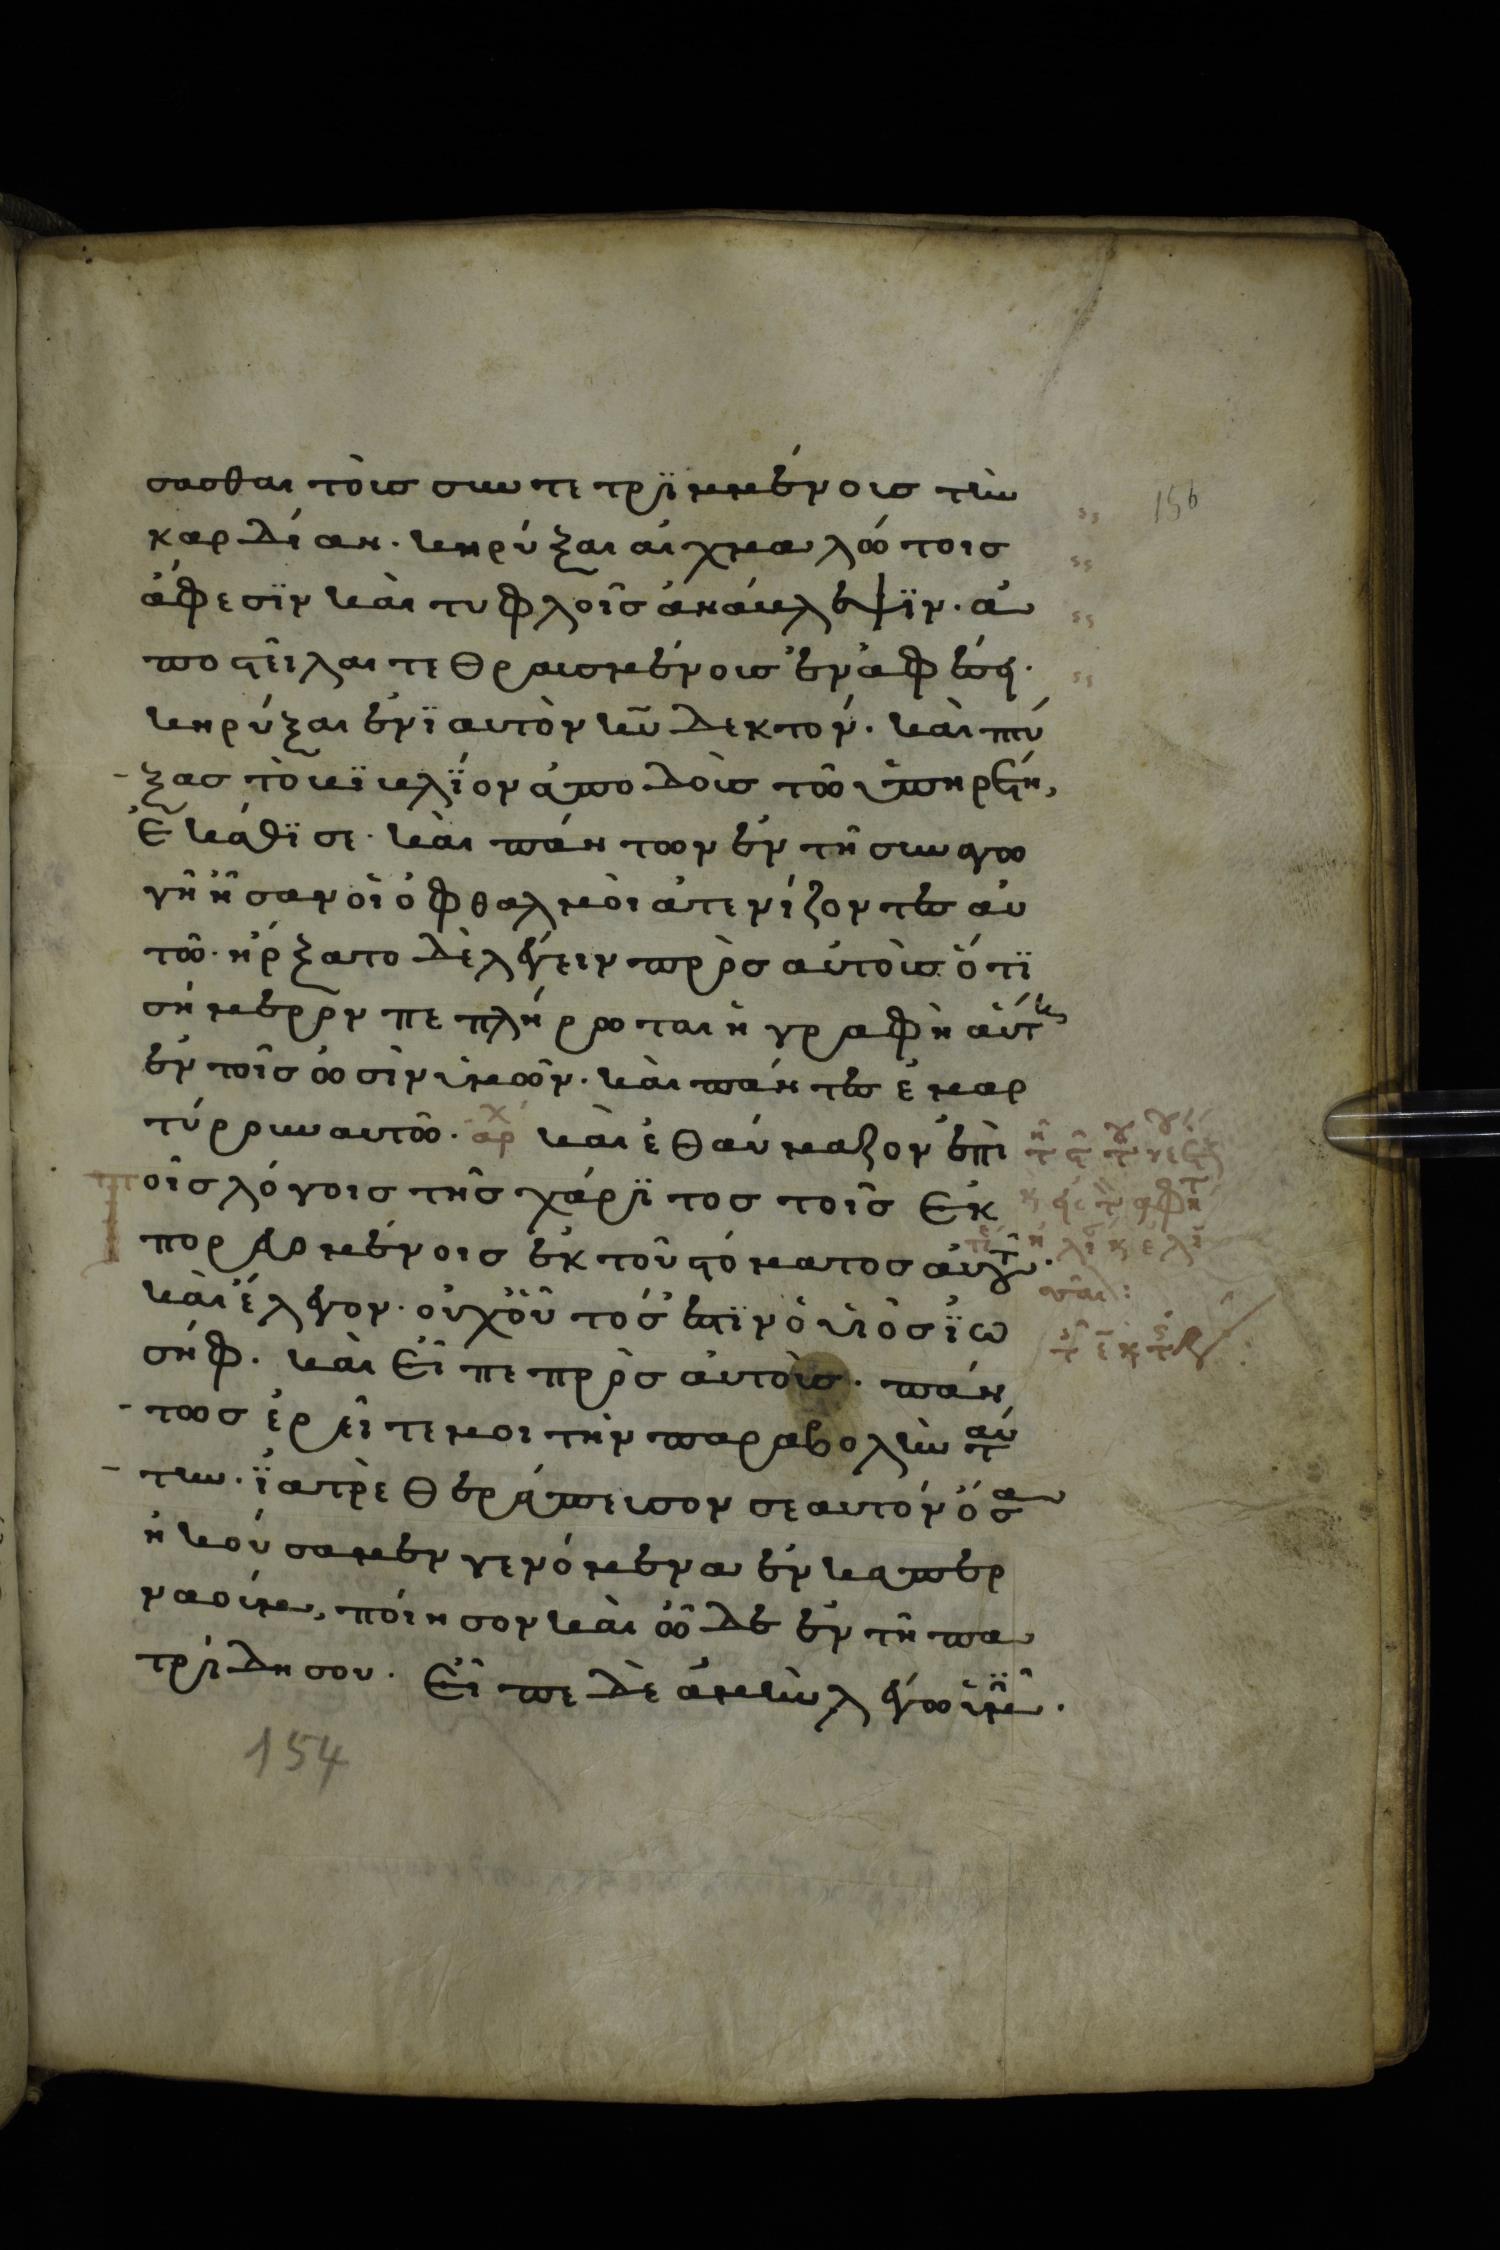 σασθαι τοὺς συντετριμμένους τὴν
καρδίαν· κηρύξαι αἰχμαλώτοις
ἄφεσϊν καὶ τυφλοῖς ἀνάβλεψϊν· ἀ
ποστεῖλαι τεθραυσμένους ἐν ἀφέσει·
κηρύξαι ἐνϊαυτὸν κ̅υ̅ δεκτόν· καὶ πτύ
ξας τὸ βϊβλΐον ἀποδοὺς τῶ ὑπηρέτη,
ἐκάθϊσε· καὶ πάντων ἐν τῆ συναγω
γῆ ἦσαν οἱ ὀφθαλμοὶ ἀτενίζοντες αὐ
τῶ· ἤρξατο δὲ λέγειν πρὸς αὐτοὺς ὅτϊ
σήμερον πεπλήρωται ἡ γραφὴ αὕτη
ἐν τοῖς ὠσὶν ὑμῶν· καὶ πάντες ἐμαρ
τύρουν αυτῶ· ἀρχ καὶ ἐθαύμαζον ἐπὶ
τοῖς λόγοις τῆς χάρϊτος τοῖς ἐκ
πορευομένοις ἐκ τοῦ στόματος αὐτοῦ·
καὶ ἔλεγον· οὐχ οὗτός ἐστϊν ὁ υἱὸς ϊω
σήφ· καὶ εἶπε πρὸς αὐτοὺς· πάν
τως ἐρεῖτε μοι τὴν παραβολὴν ταύ
την· ϊατρὲ θεράπευσον σεαυτόν· ὅσα
ἠκούσαμεν γενόμενα ἐν καπερ
ναούμ, ποίησον καὶ ὧδε ἐν τῆ πα
τρίδη σου· εἶπε δὲ ἀμὴν λέγω ὑμῖν·
154
156